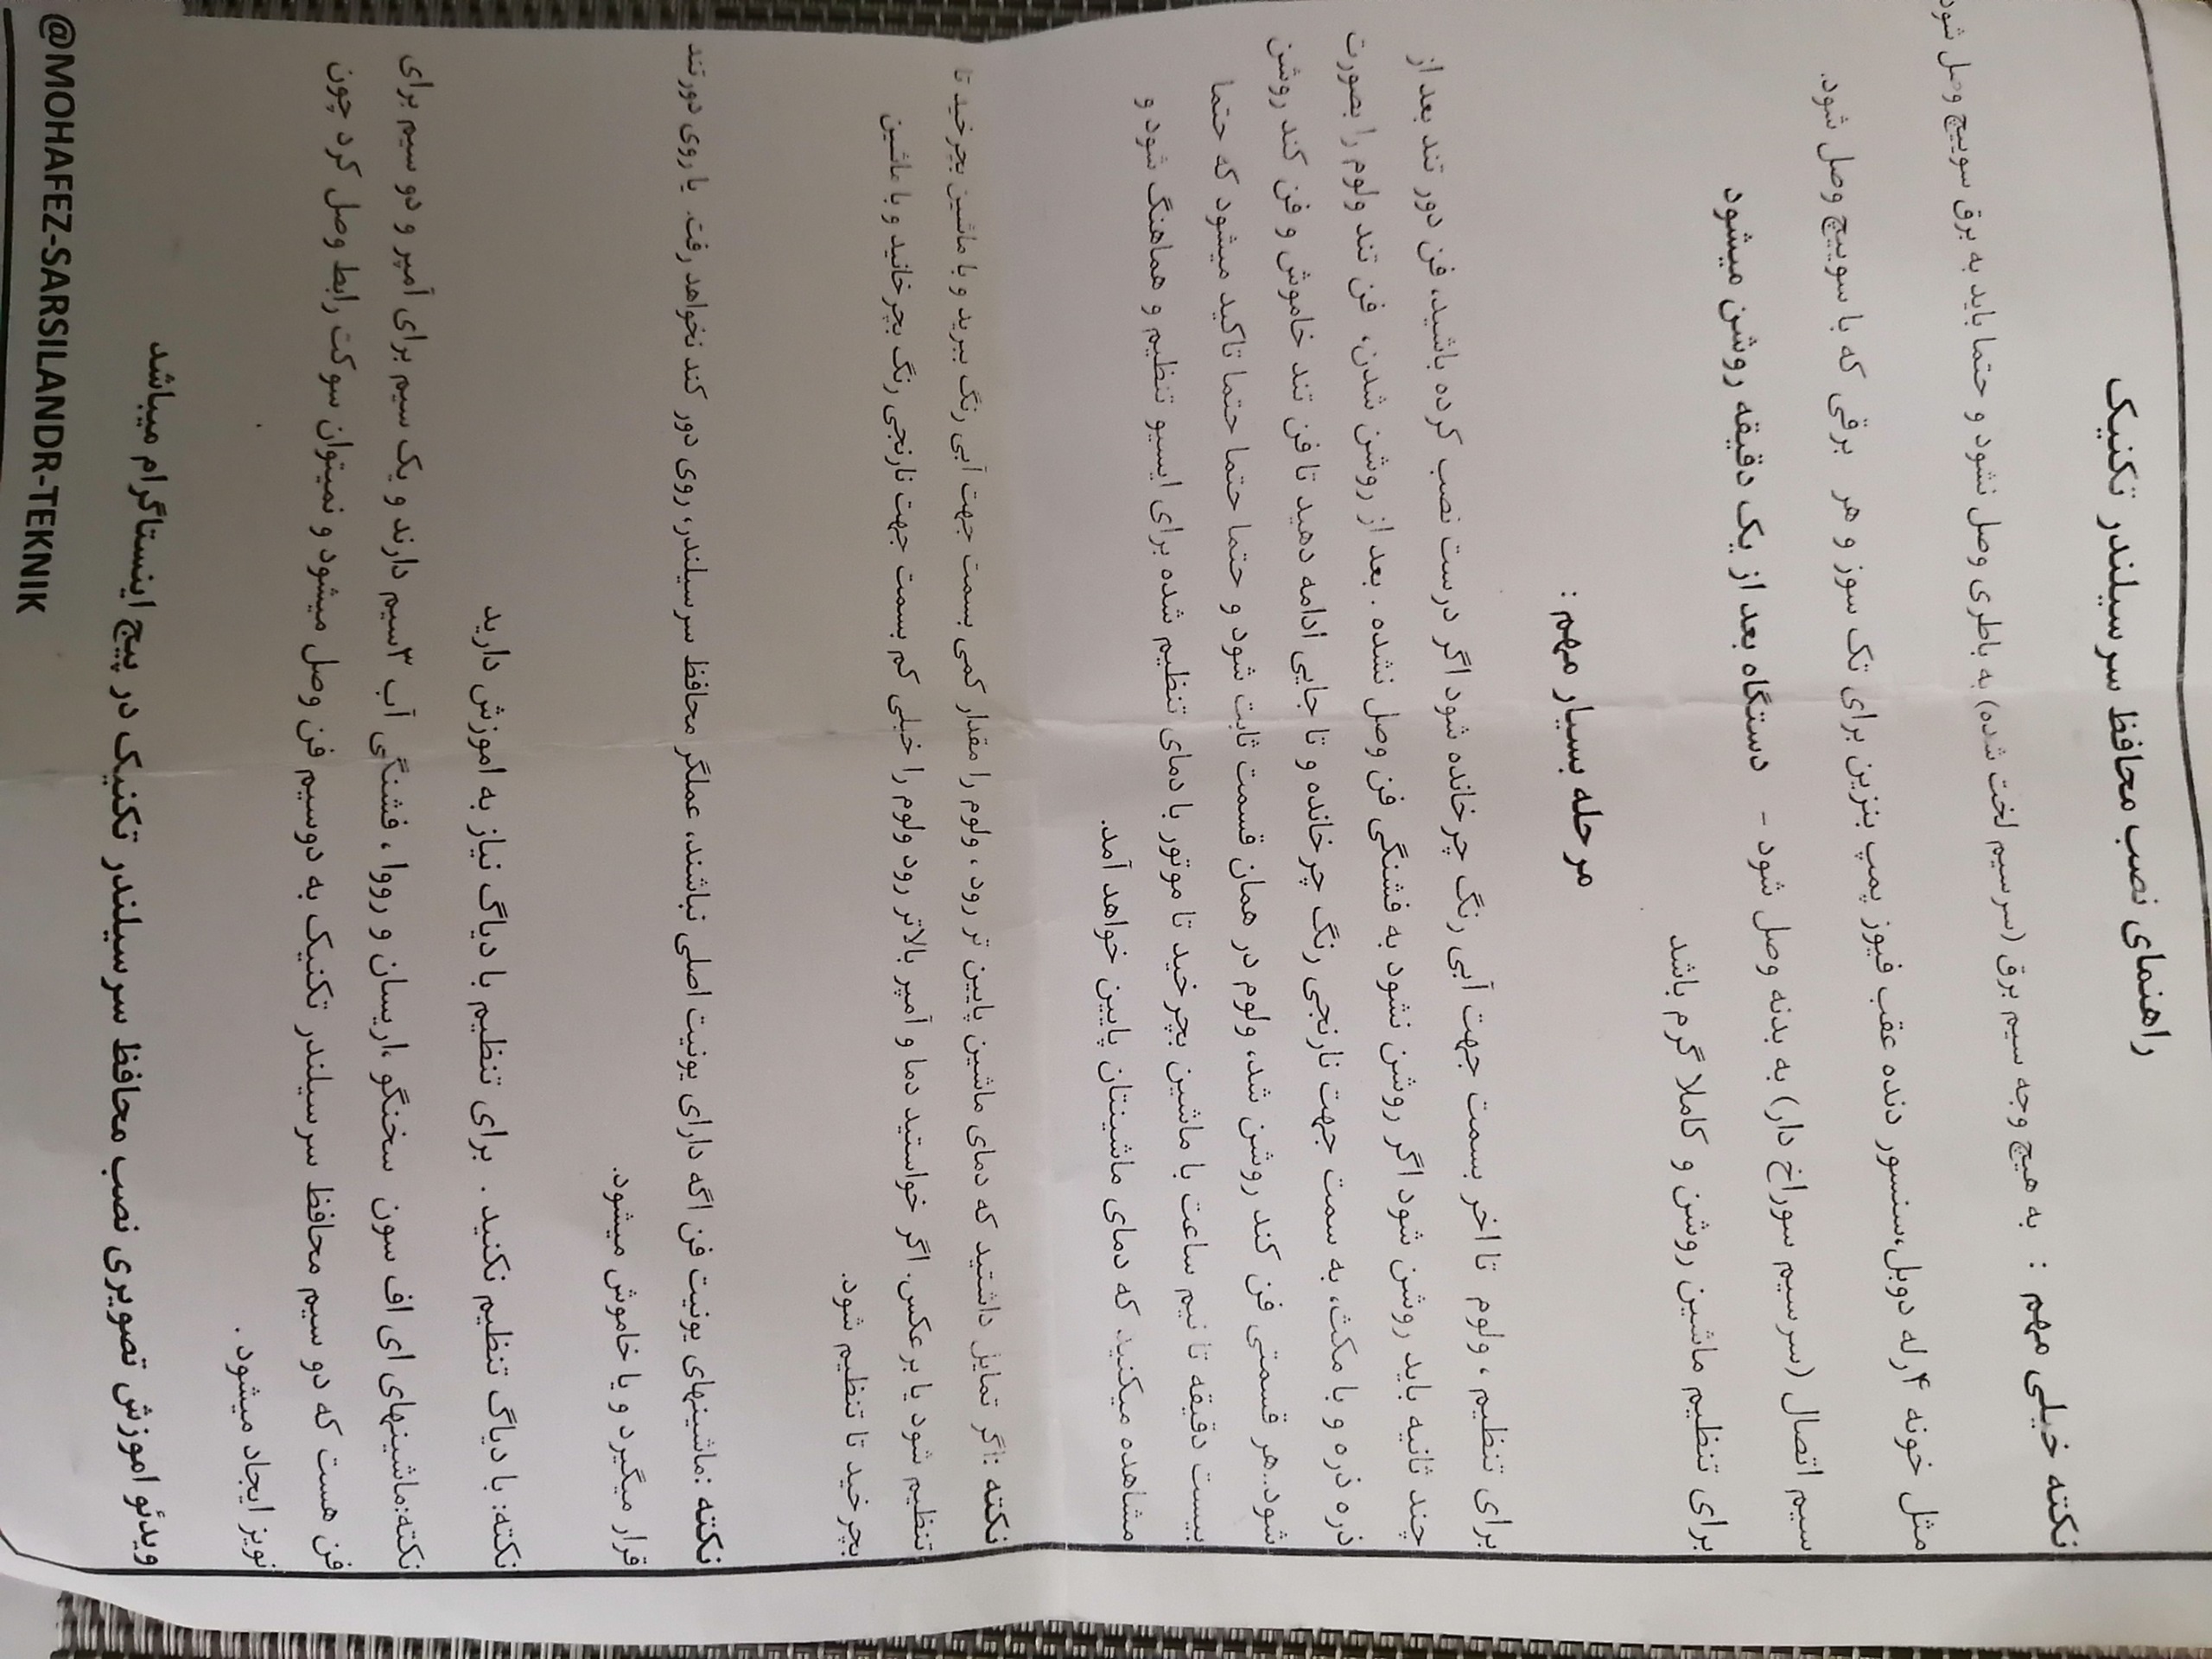 راهنمای نصب محافظ سرسیلندر تکنیک
نکته خیلی مهم : به هیچ وجه سیم برق (سرسیم لخت شده) به باطری وصل نشود و حتما باید به برق سوییچ وصل شود
مثل خونه ۴رله دوبل،سنسور دنده عقب فیوز پمپ بنزین برای تک سوز و هر برقی که با سوییچ وصل شود.
سیم اتصال (سرسیم سوراخ دار) به بدنه وصل شود - دستگاه بعد از یک دقیقه روشن میشود
برای تنظیم ماشین روشن و کاملا گرم باشد
مرحله بسیار مهم :
برای تنظیم ، ولوم تا اخر بسمت جهت آبی رنگ چرخانده شود اگر درست نصب کرده باشید، فن دور تند بعد از
چند ثانیه باید روشن شود اگر روشن نشود به فشنگی فن وصل نشده . بعد از روشن شدن، فن تند ولوم را بصورت
ذره ذره و با مکث، به سمت جهت نارنجی رنگ چرخانده و تا جایی ادامه دهید تا فن تند خاموش و فن کند روشن
شود..هر قسمتی فن کند روشن شد، ولوم در همان قسمت ثابت شود و حتما حتما حتما تاکید میشود که حتما
بیست دقیقه تا نیم ساعت با ماشین بچرخید تا موتور با دمای تنظیم شده برای ایسیو تنظیم و هماهنگ شود و
مشاهده میکنید که دمای ماشینتان پایین خواهد آمد.
نکته :اگر تمایل داشتید که دمای ماشین پایین تر رود ، ولوم را مقدار کمی بسمت جهت آبی رنگ ببرید و با ماشین بچرخید تا
تنظیم شود یا برعکس. اگر خواستید دما و آمپر بالاتر رود ولوم را خیلی کم بسمت جهت نارنجی رنگ بچرخانید و با ماشین
بچرخید تا تنظیم شود.
نکته :ماشینهای یونیت فن اگه دارای یونیت اصلی نباشند، عملگر محافظ سرسیلندر، روی دور کند نخواهد رفت. یا روی دورتند
قرار میگیرد و یا خاموش میشود.
نکته: با دیاگ تنظیم نکنید . برای تنظیم با دیاگ نیاز به اموزش دارید
نکته:ماشینهای ای اف سون سخنگو ،اریسان و رووا ، فشنگی آب ۳سیم دارند و یک سیم برای آمپر و دو سیم برای
فن هست که دو سیم محافظ سرسیلندر تکنیک به دوسیم فن وصل میشود و نمیتوان سوکت رابط وصل کرد چون
نویز ایجاد میشود .
ویدئو اموزش تصویری نصب محافظ سرسیلندر تکنیک در پیج اینستاگرام میباشد
@MOHAFEZ-SARSILANDR-TEKNIK